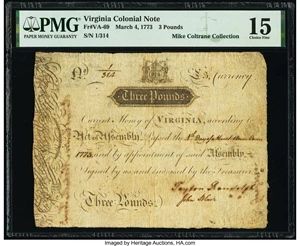 PMG
PAPER MONEY GUARANTY
Virginia Colonial Note
Fr#VA-69 March 4, 1773 3 Pounds
S/N 1/314
Mike Coltrane Collection
15
Choice Fine
£3, Currency
314
Three Pounds
Current Money of VIRGINIA, according to
Act of Assembly, passed the
1773 and by appointment of said Assembly
Signed by us and indorsed by the Treasurer
Three Pounds
Peyton Randolph
John Blair
Images by Heritage Auctions, HA.com